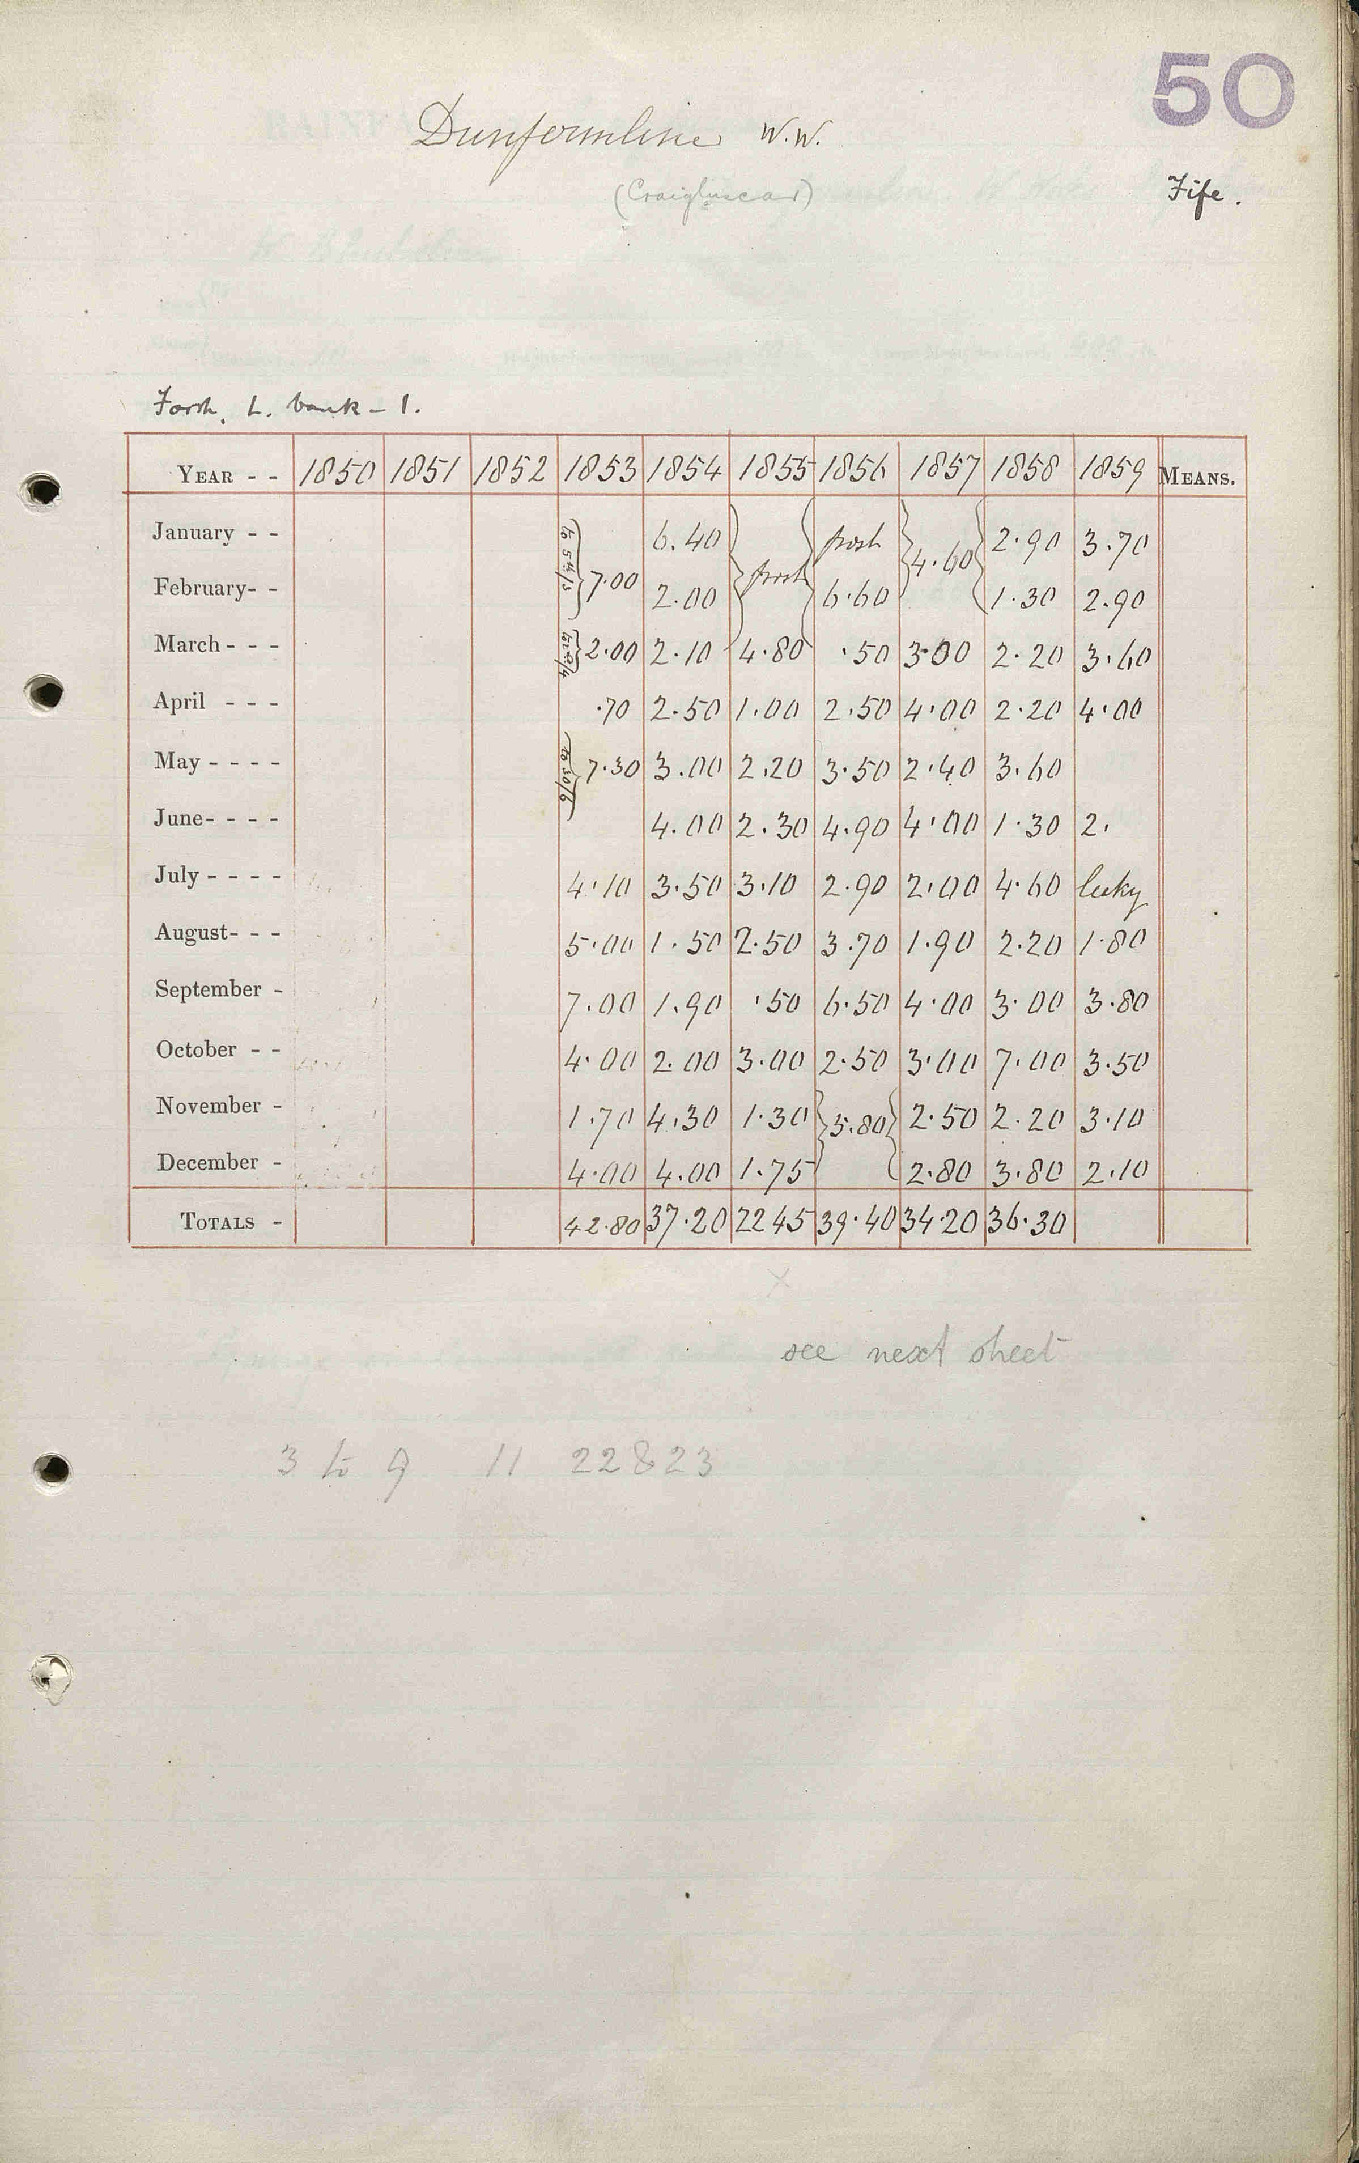 50
Dunfermline W.W.
(Craigluscar)
Fife.
Forth, L. bank - 1.
YEAR - - 1850 1851 1852 1853 1854 1855 1856 1857 1858 1859 MEANS.
January - - to 5th/3 6.40 frost 2.90 3.70
February - - 7.00 2.00 frost 6.60 4.60 1.30 2.90
March - - - 2.00 2.10 4.80 .50 3.00 2.20 3.60
April - - - .70 2.50 1.00 2.50 4.00 2.20 4.00
May - - - - to 30/6 7.30 3.00 2.20 3.50 2.40 3.60
June - - - - 4.00 2.30 4.90 4.00 1.30 2.
July - - - - 4.10 3.50 3.10 2.90 2.00 4.60 leeky
August - - - 5.00 1.50 2.50 3.70 1.90 2.20 1.80
September - 7.00 1.90 .50 6.50 4.00 3.00 3.80
October - - 4.00 2.00 3.00 2.50 3.00 7.00 3.50
November - 1.70 4.30 1.30 5.80 2.50 2.20 3.10
December - 4.00 4.00 1.75 2.80 3.80 2.10
TOTALS - 42.80 37.20 22 45 39.40 34.20 36.30
x
see next sheet
3 to 9 11 22 & 23